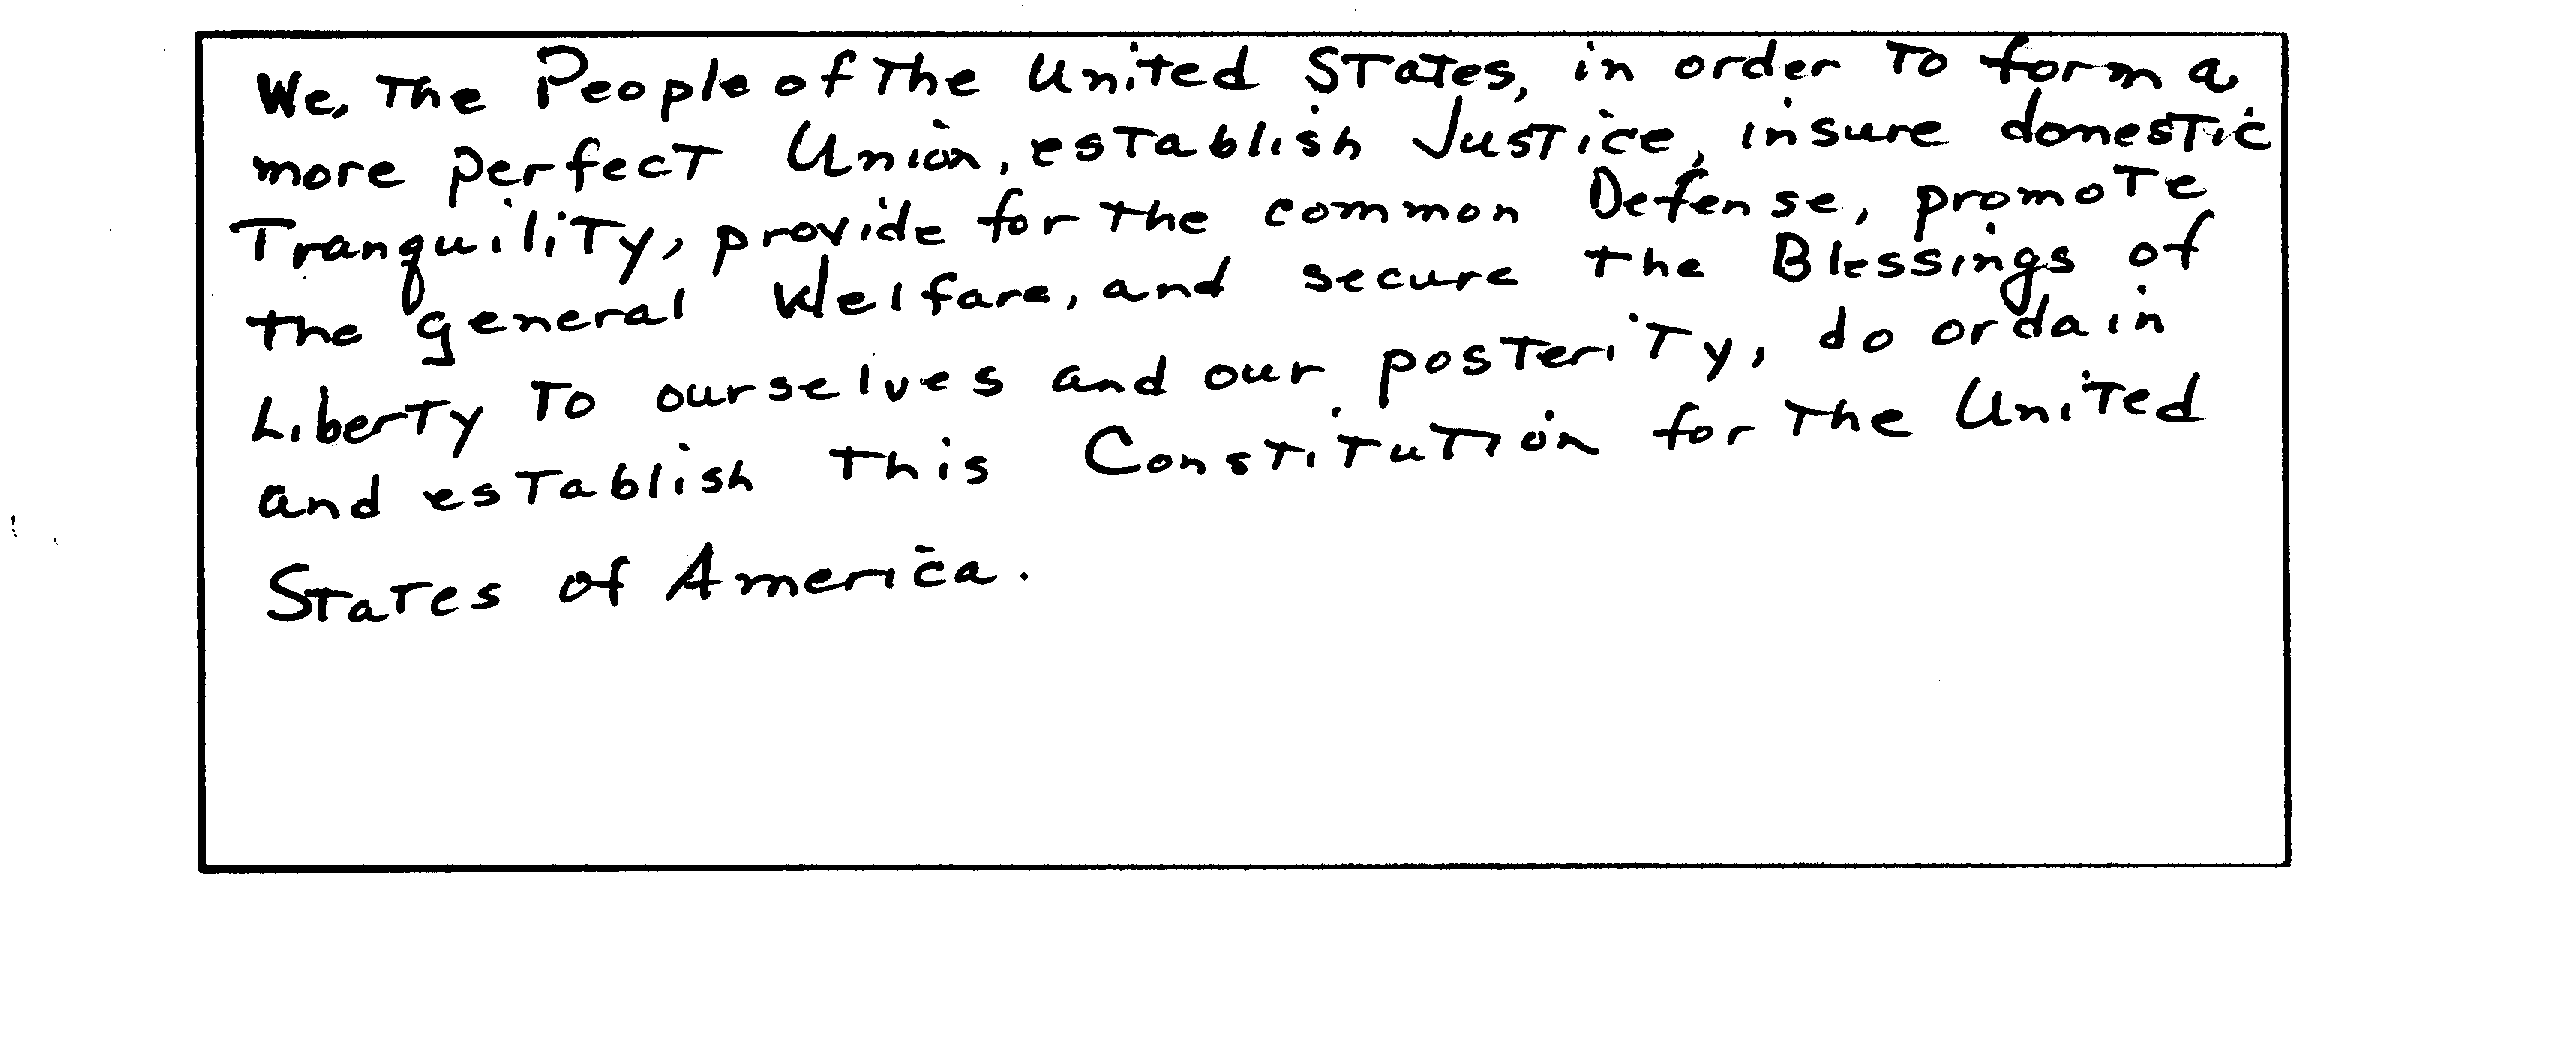 We, the People of the United States, in order to form a
more perfect Union, establish Justice, insure domestic
Tranquility, provide for the common Defense, promote
the general Welfare, and secure the Blessings of
Liberty to ourselves and our posterity, do ordain
and establish this Constitution for the United
States of America.